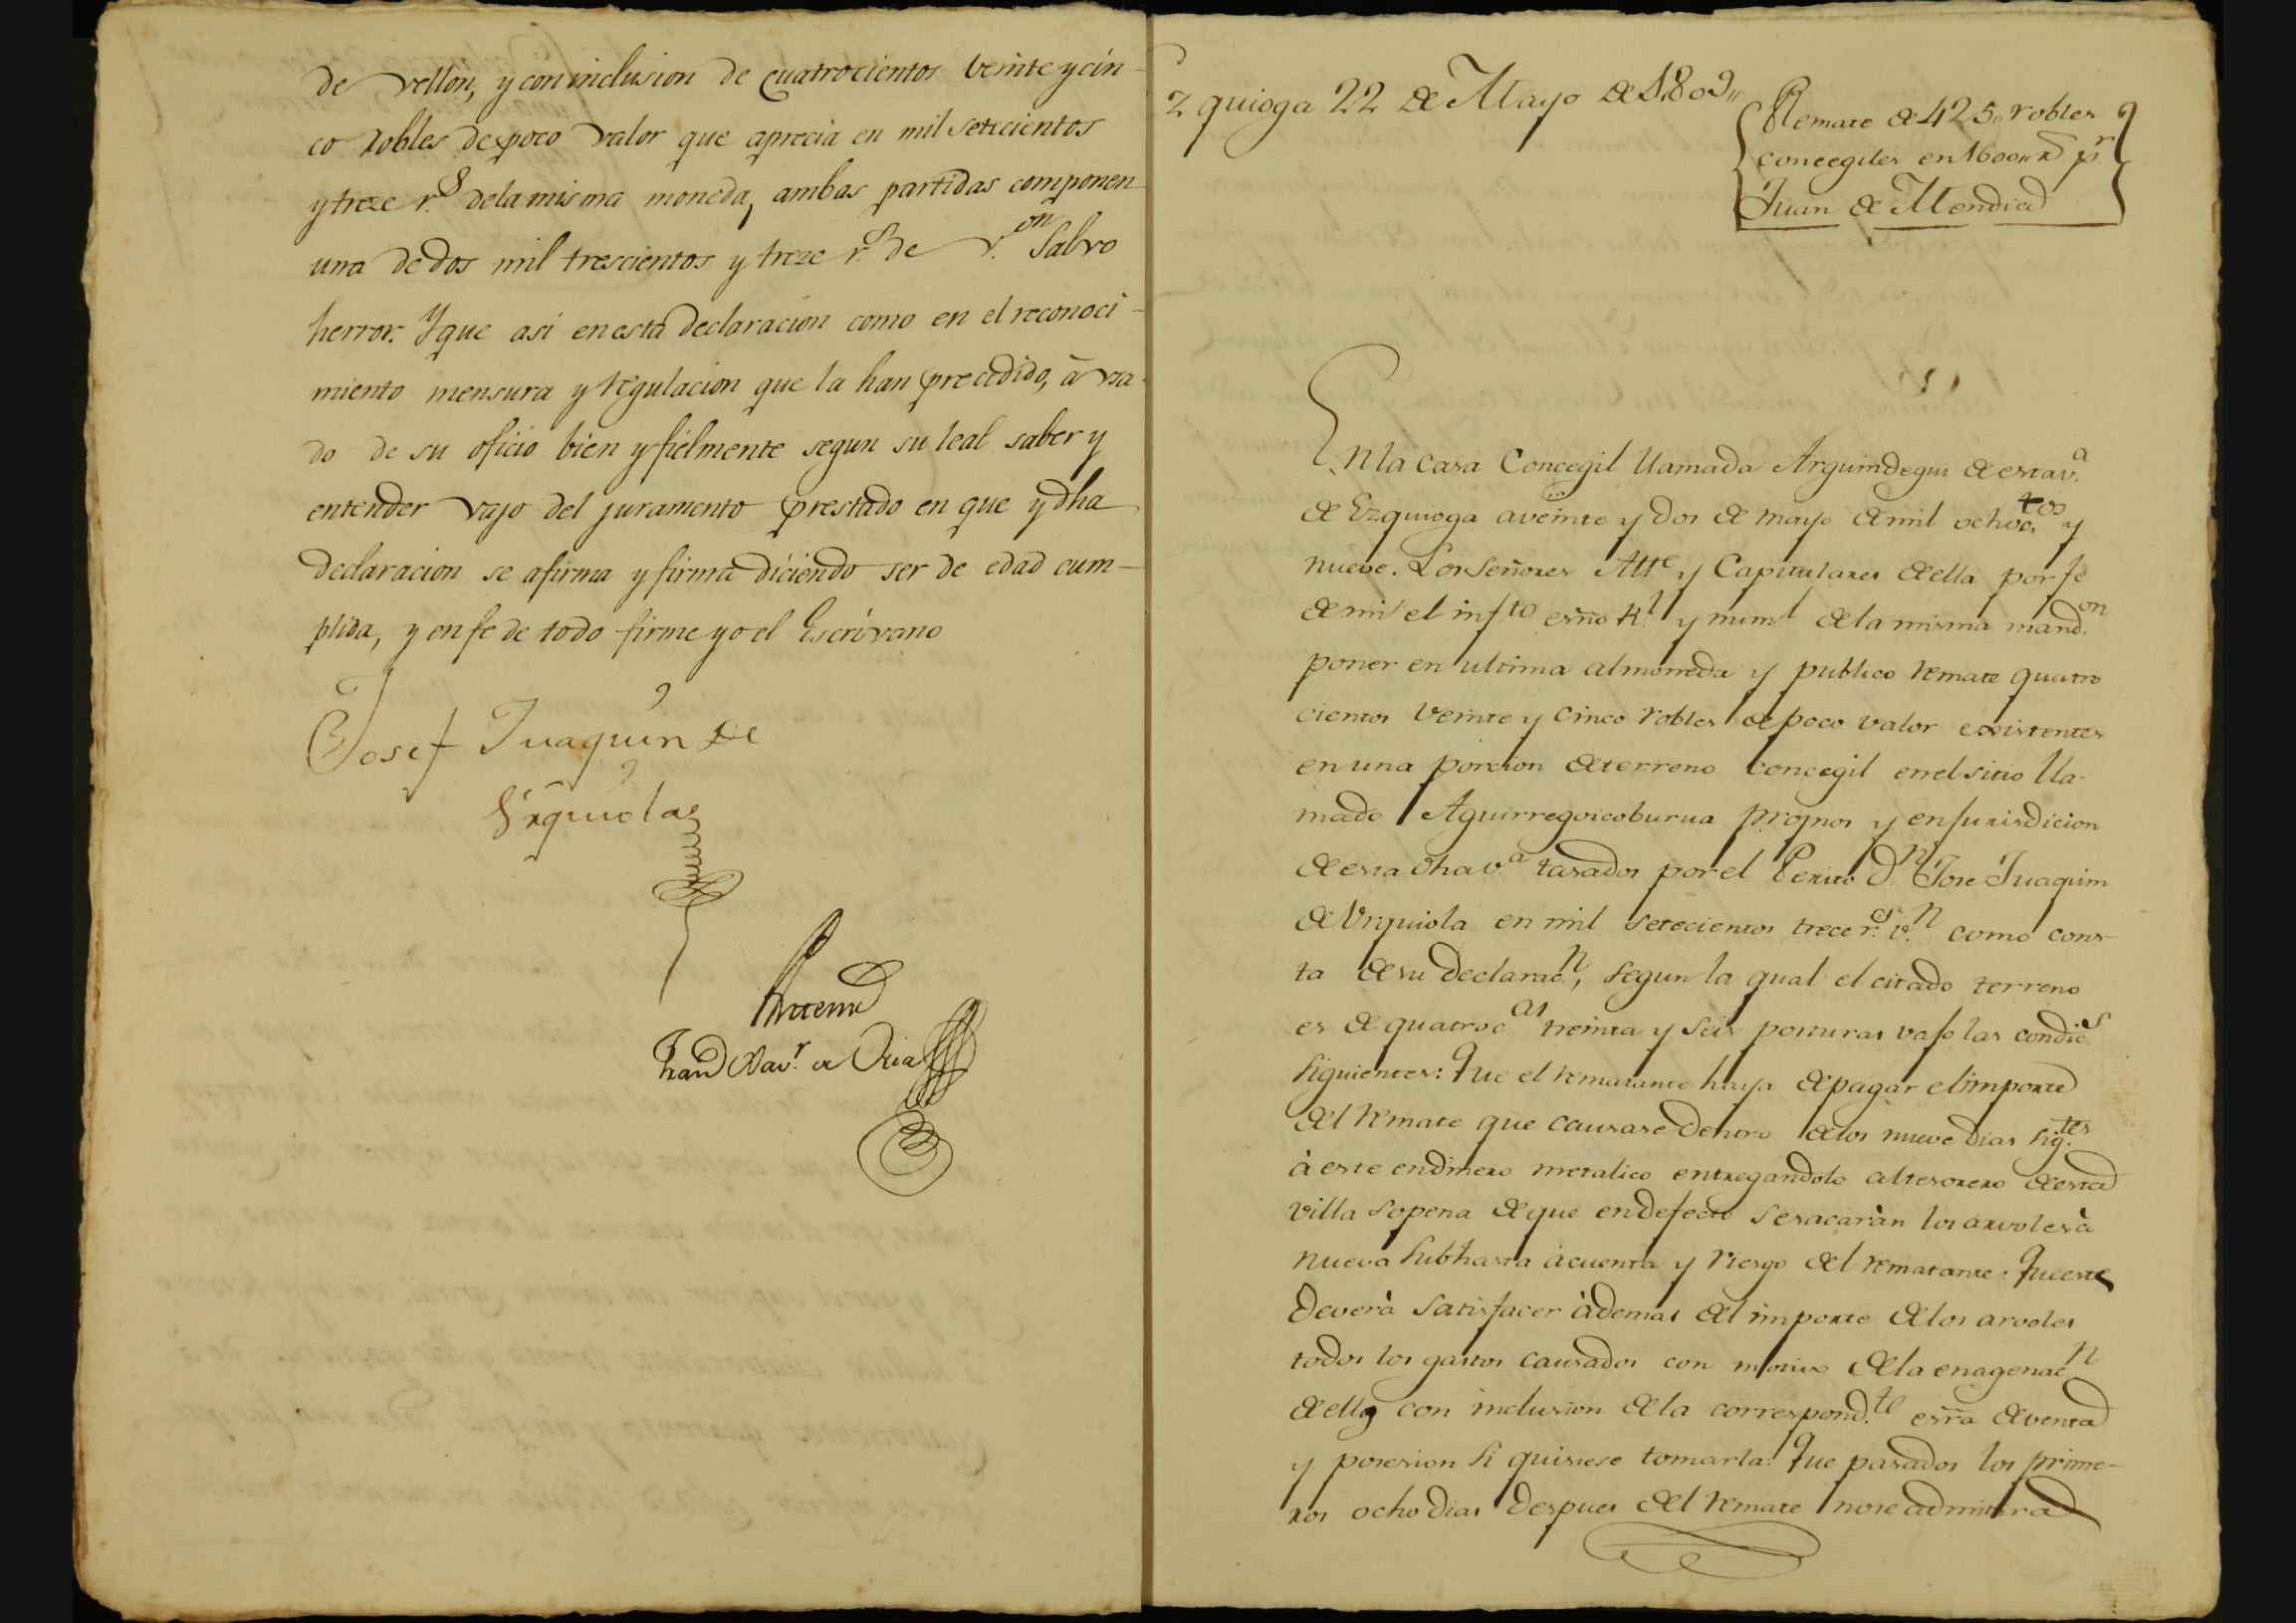 de vellon, y con inclusion de cuatrocientos veinte y cin-
co robles de poco valor que aprecia en mil setecientos
y treze r.s de la misma moneda, ambas partidas componen
una de dos mil trescientos y treze r.s de v.on Salvo
herror. Y que asi en esta declaracion como en el reconoci-
miento mensura y regulacion que la han precedido, à vsa-
do de su oficio bien y fielmente segun su leal saber y
entender vajo del juramento prestado en que y dha
declaracion se afirma y firma diciendo ser de edad cum-
plida, y en fe de todo firme yo el Escrivano
Josef Juaquin de
Vrquiola
Antemi
Fran.co Xav.r de Oria
zquioga 22 de Mayo de 1809,,
Remate de 425,, robles
concegiles en 1600,, r.s p.r
Juan de Mendia
En la casa Concegil llamada Arguindegui de esta v.a
de Ezquioga a veinte y dos de mayo de mil ochoc.tos y
nueve. Los señores Alle y Capitulares de ella por fe
de mi el inf.to esño R.l y num.l de la misma mand.on
poner en ultima almoneda y publico remate quatro
cientos veinte y cinco robles de poco valor existentes
en una porcion de terreno concegil en el sitio lla-
mado Aguirregoicoburua propios y en jurisdicion
de esta dha v.a tasados por el Perito D.n Jose Juaquim
de Vrquiola en mil setecientos trece r.s v.n como cons-
ta de su declarac.n, segun la qual el citado terreno
es de quatroc.as treinta y seis posturas vajo las condic.s
siguientes: Que el rematante haya de pagar el importe
del remate que causare dentro de los nueve dias sig.tes
à este en dinero metalico entregandolo al tesorero de esta
villa sopena de que en defecto se sacaràn los arvoles à
nueva subhasta à cuenta y riesgo del rematante: Que este
deverà satisfacer àdemas del importe de los arvoles
todos los gastos causados con motivo de la enagenac.n
de ellos con inclusion de la correspond.te esrra de venta
y posesion si quisiese tomarla: Que pasados los prime-
ros ocho dias despues del remate no se admitira